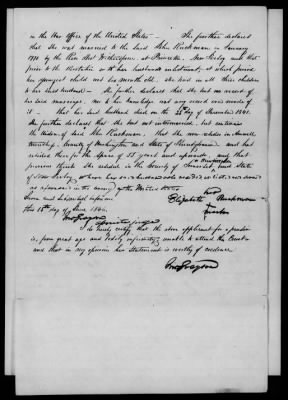 in the War Office of the United States — She further declared
that she was married to the said John Ruckman in January
1780 by the Revd. Doct Witherspoon, at Princeton, New Jersey and that
prior to the dissolution of her husbands enlistment, at which period
her youngest child was six months old. she had in all three children
to her said husband — She further declared that she has no record of
his said marriage, nor to her knowledge was any record ever made of
it — That her said husband died on the 25th day of December 1841.
She further declares that she has not intermarried, but continues
the widow of said John Ruckman, that she now resides in Amwell
Township, County of Washington and State of Pennsylvania and has
resided there for the space of 55 years and upwards, and that
previous thereto she resided in the County of Somerset and State
of New Jersey, where her said husband
as aforesaid in the army of the United States
Sworn and subscribed before me
this 15th day of June 1846.
Elizabeth Ruckman
her
mark
Jno Grayson
associate judge
I do hereby certify that the above applicant for a pension
is, from great age and bodily infirmity, unable to attend the Court
and that in my opinion her statement is worthy of credence
Jno Grayson